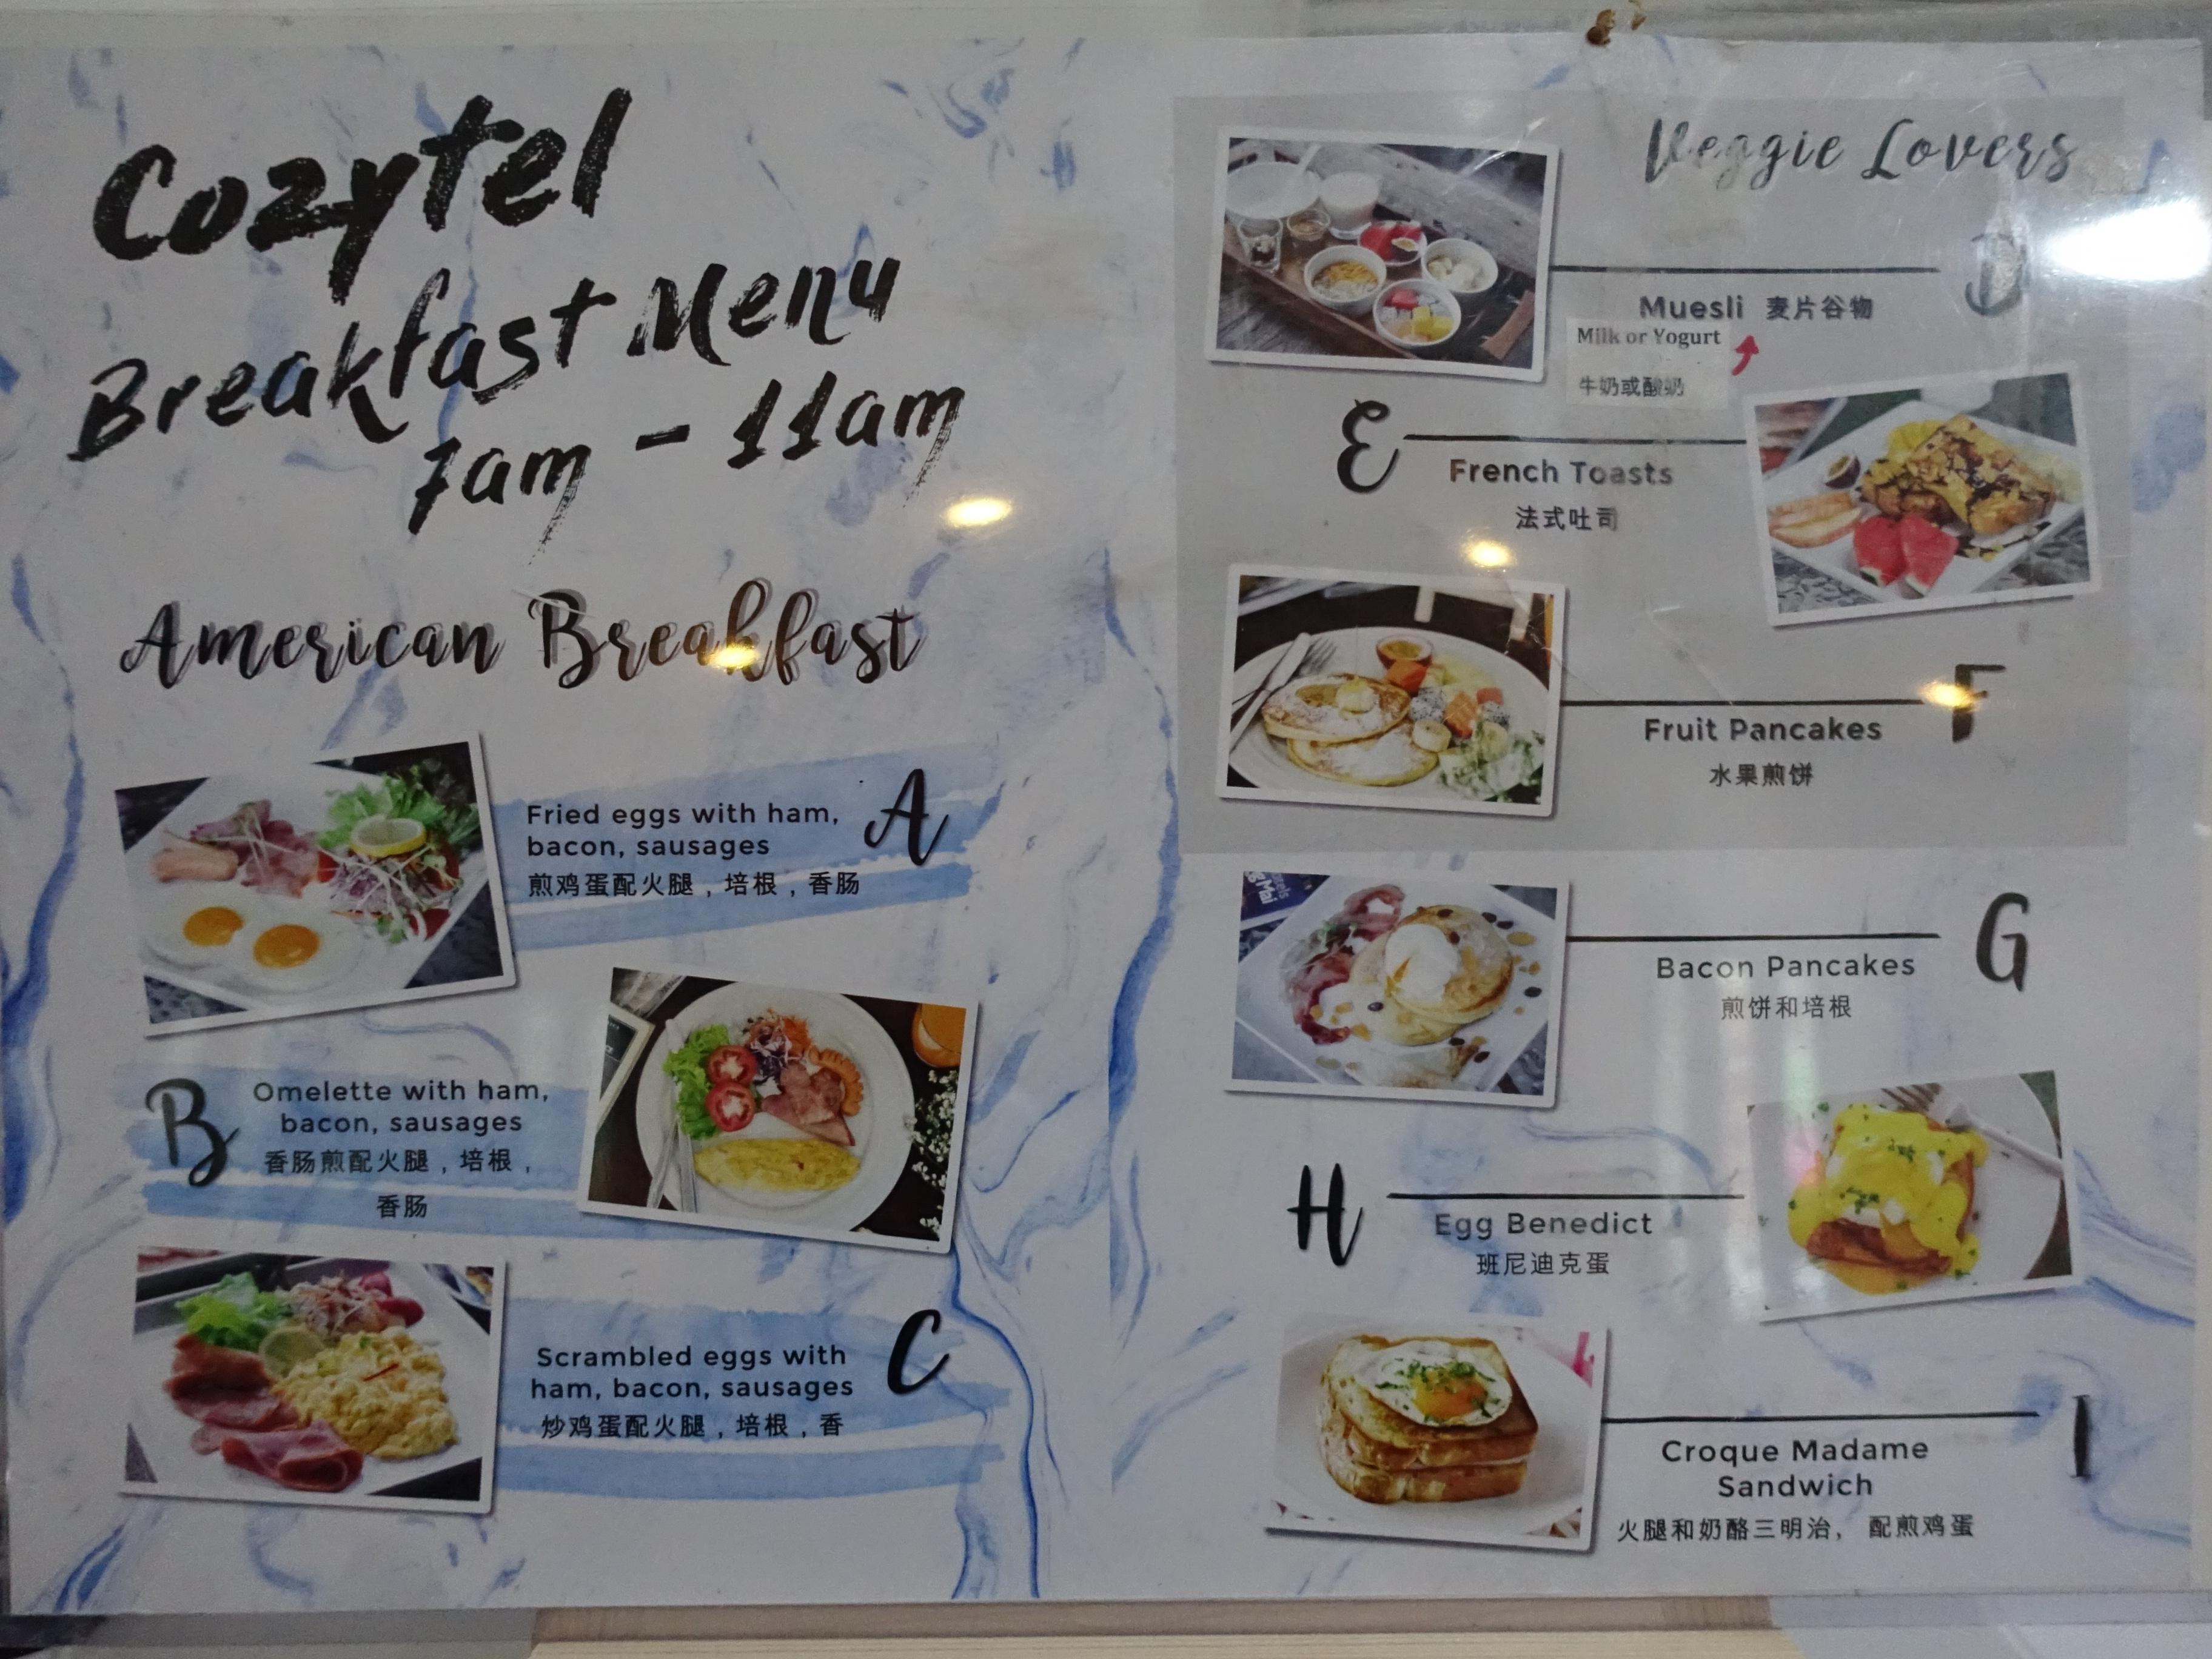 Cozytel
Breakfast Menu
7am - 11am
American Breakfast
A
Fried eggs with ham,
bacon, sausages
煎鸡蛋配火腿，培根，香肠
B
Omelette with ham,
bacon, sausages
香肠煎配火腿，培根，
香肠
C
Scrambled eggs with
ham, bacon, sausages
炒鸡蛋配火腿，培根，香
Veggie Lovers
D
Muesli 麦片谷物
Milk or Yogurt
牛奶或酸奶
E
French Toasts
法式吐司
F
Fruit Pancakes
水果煎饼
G
Bacon Pancakes
煎饼和培根
H
Egg Benedict
班尼迪克蛋
I
Croque Madame
Sandwich
火腿和奶酪三明治， 配煎鸡蛋